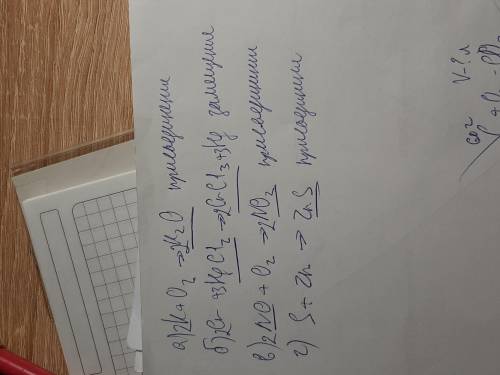 а) 2K + O₂ → 2K₂O присоединении
б) 2Cr + 3HgCl₂ → 2CrCl₃ + 3Hg замещение
в) 2NO + O₂ → 2NO₂ присоединении
г) S + Zn → ZnS присоединении
V-? л